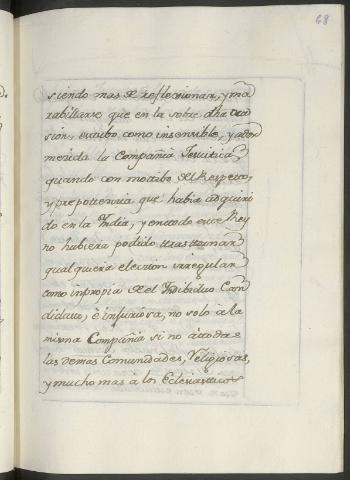 68
siendo mas de reflexionar, y ma
rabillarse, que en la sobre dha oca
sion, estubo como insensible, y ador
mecida la Compañia Jesuitica,
quando con motibo del Respecto,
y prepotencia que habia adquiri
do en la India, y en todo este Rey
no hubiera podido trastornar
qualquiera eleccion irregular
como inpropia de el Indibiduo Can
didato, è injuriosa, no solo à la
misma Compañia si no à todas
las demas Comunidades, Religiosas,
y mucho mas à los Eclesiasticos